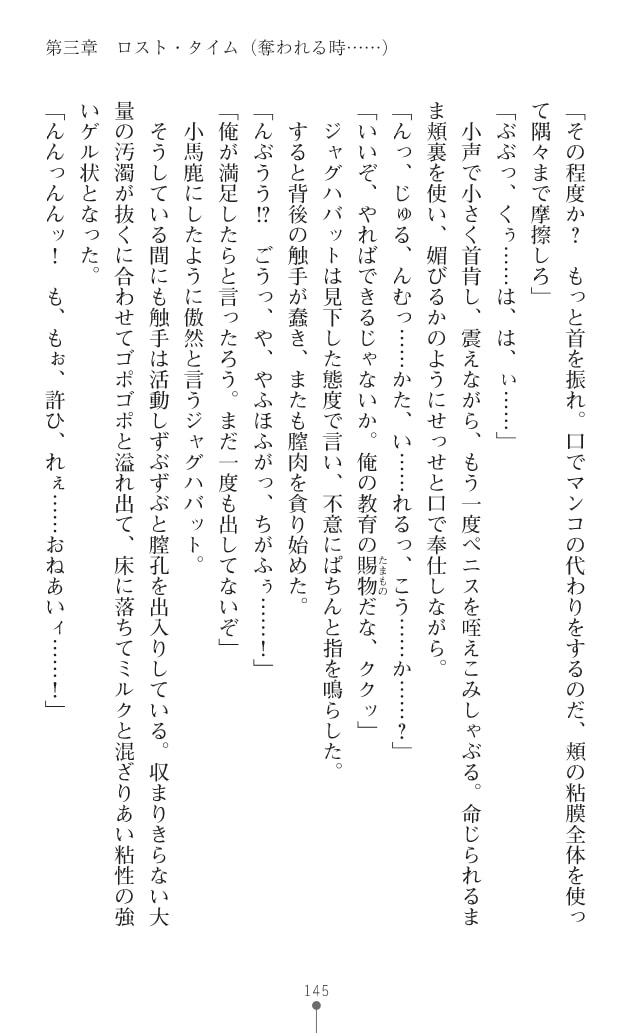 第三章　ロスト・タイム（奪われる時……）
「その程度か？　もっと首を振れ。口でマンコの代わりをするのだ、頬の粘膜全体を使っ
て隅々まで摩擦しろ」
「ぶぶっ、くぅ……は、は、ぃ……」
　小声で小さく首肯し、震えながら、もう一度ペニスを咥えこみしゃぶる。命じられるま
ま頬裏を使い、媚びるかのようにせっせと口で奉仕しながら。
「んっ、じゅる、んむっ……かた、い……れるっ、こう……か……？」
「いいぞ、やればできるじゃないか。俺の教育の賜物だな、ククッ」
たまもの
　ジャグハバットは見下した態度で言い、不意にぱちんと指を鳴らした。
　すると背後の触手が蠢き、またも膣肉を貪り始めた。
「んぶうう!?　ごうっ、や、やふほふがっ、ちがふぅ……！」
「俺が満足したらと言ったろう。まだ一度も出してないぞ」
　小馬鹿にしたように傲然と言うジャグハバット。
　そうしている間にも触手は活動しずぶずぶと膣孔を出入りしている。収まりきらない大
量の汚濁が抜くに合わせてゴポゴポと溢れ出て、床に落ちてミルクと混ざりあい粘性の強
いゲル状となった。
「んんっんんッ！　も、もぉ、許ひ、れぇ……おねあいィ……！」
145